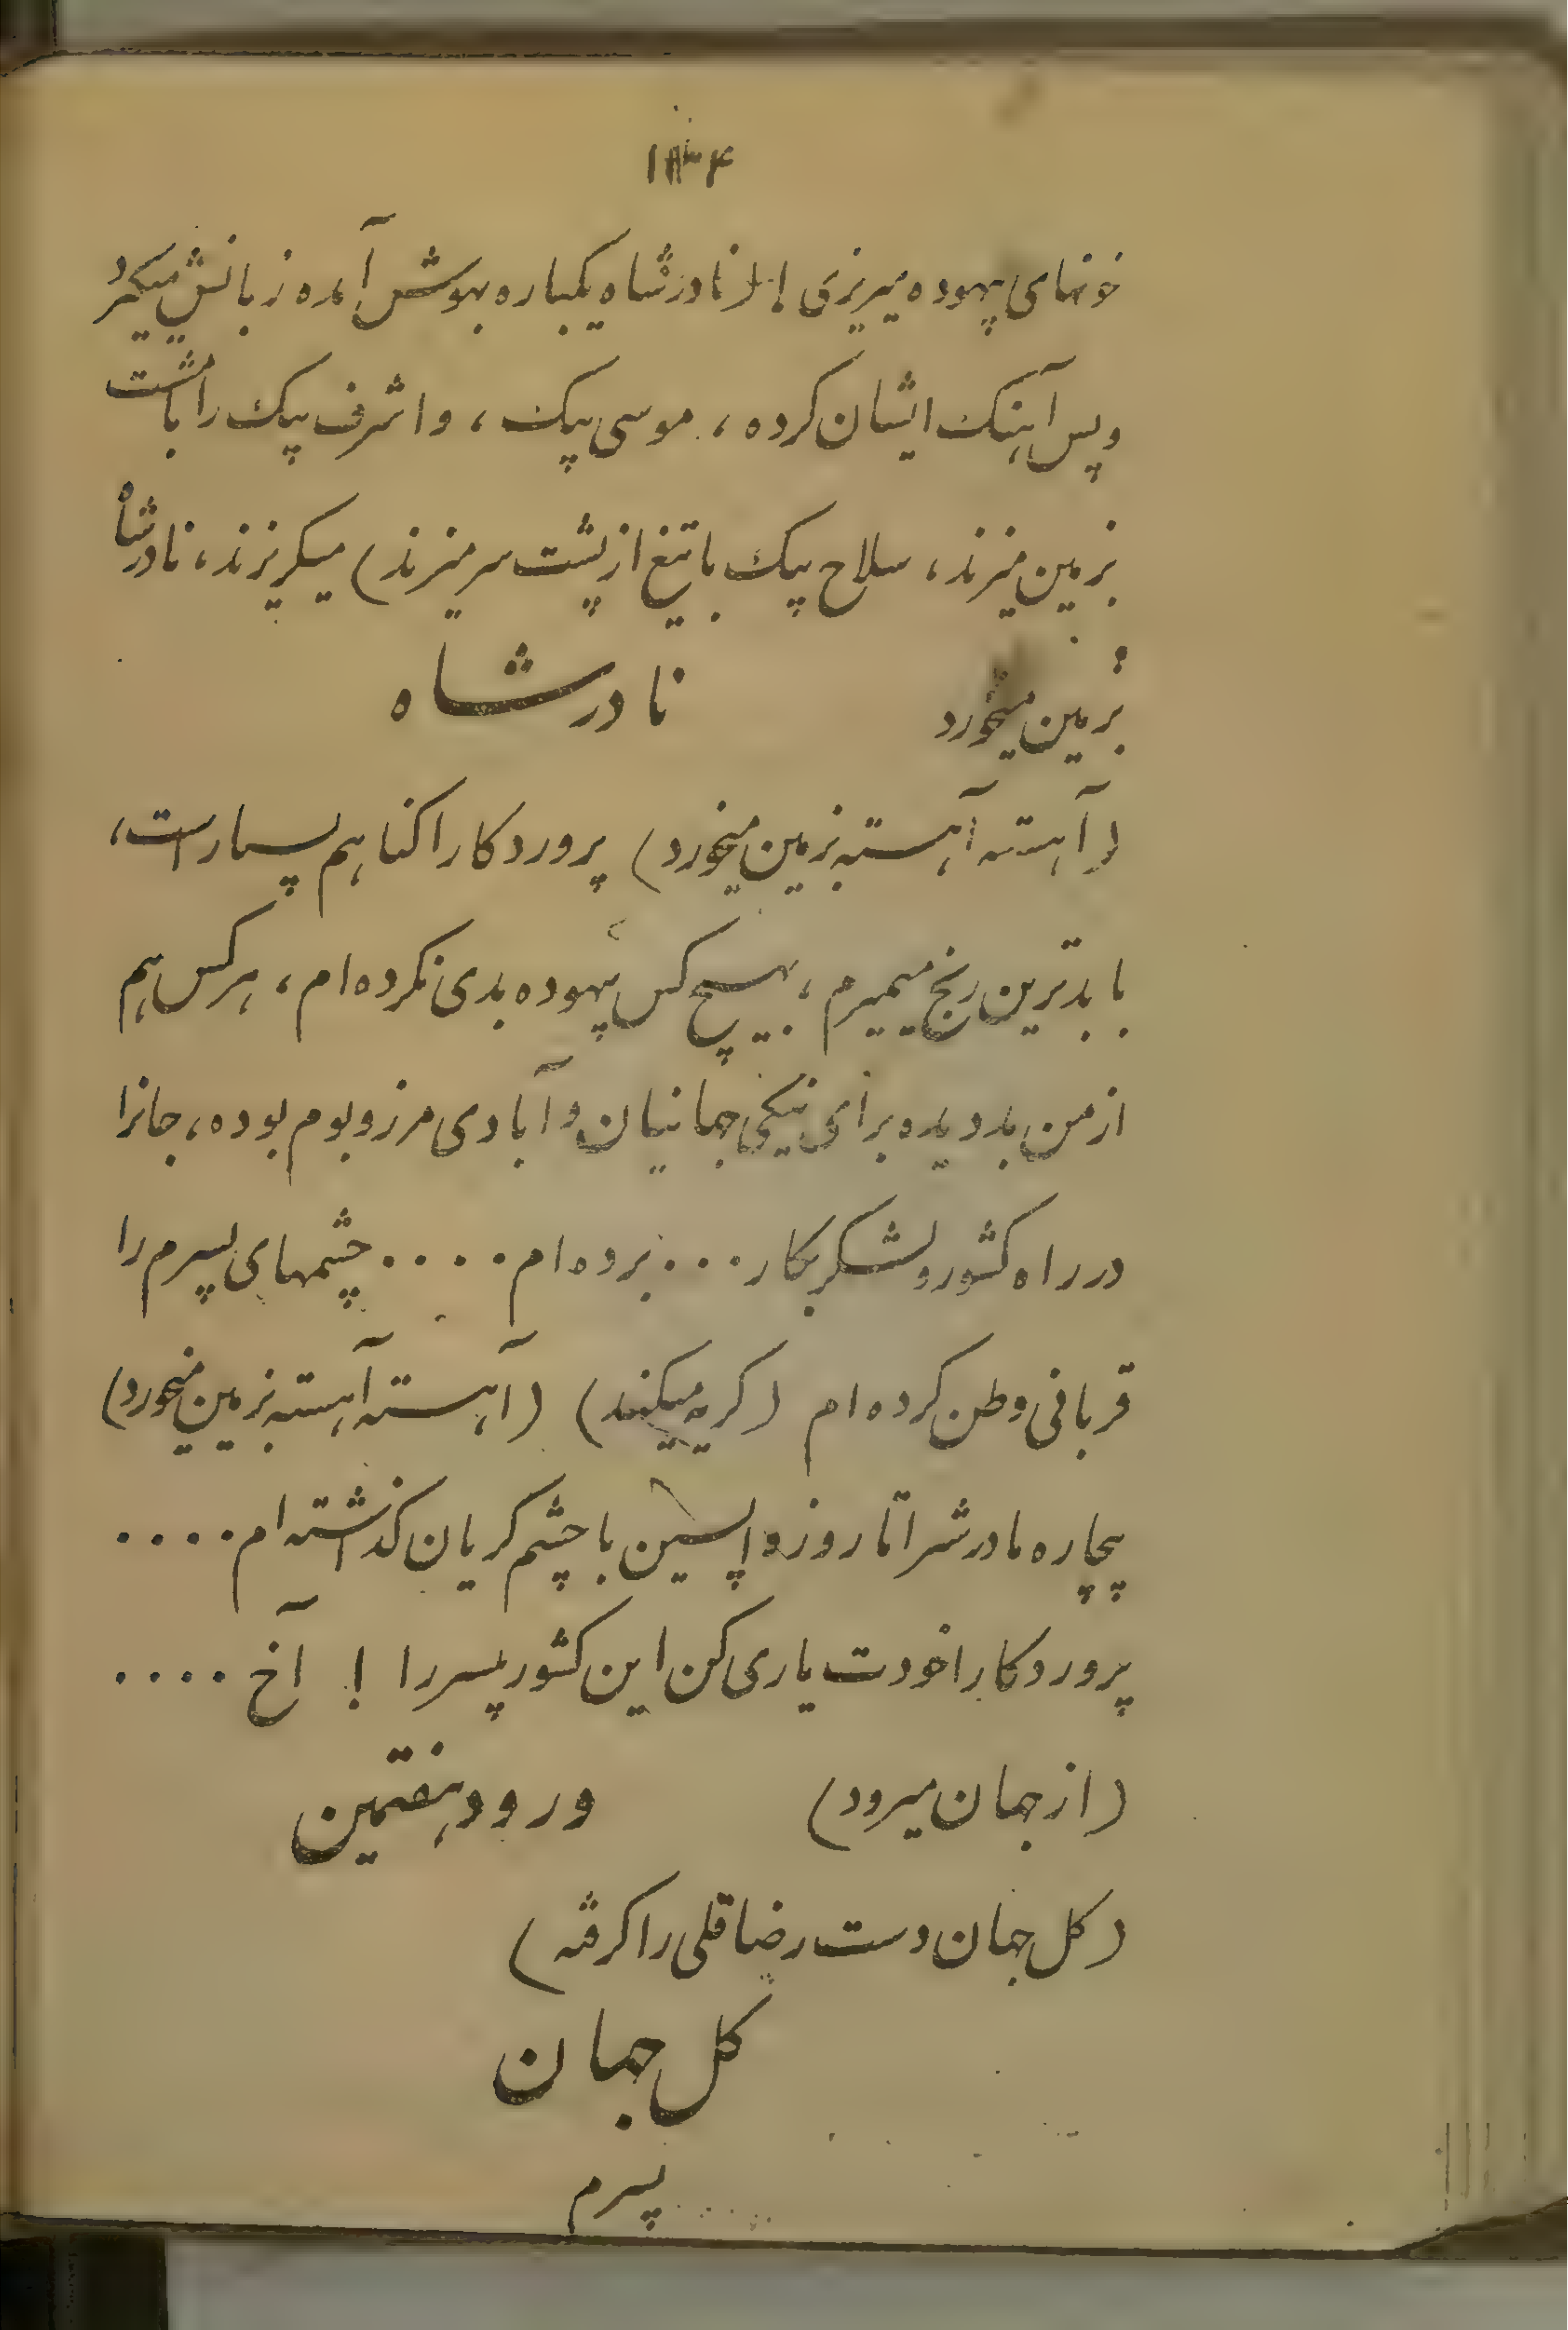 ۱۳۴
خونهای بیهوده میریزی !! (نادرشاه یکباره بهوش آمده زبانش میگیرد
وپس آهنک ایشان کرده ، موسی بیک ، واشرف بیک را بامشت
بزمین میزند ، سلاح بیک باتیغ ازپشت سر میزند) میگریزند ، نادرشاه
بزمین میخورد
نادرشاه
(آهسته آهسته بزمین میخورد) پروردکارا کناهم بسیار است ،
با بدترین رنج میمیرم ، بهیچ کس بیهوده بدی نکرده‌ام ، هرکس هم
از من بد دیده برای نیکی جهانیان و آبادی مرز و بوم بوده ، جانرا
در راه کشور ولشکر بکار ... برده‌ام .... چشمهای پسرم را
قربانی وطن کرده‌ام (کریه میکند) (آهسته آهسته بزمین میخورد)
بیچاره مادرش را تا روز واپسین با چشم کریان کذاشته‌ام ....
پروردکارا خودت یاری کن این کشور بیسر را ! آخ ....
(از جهان میرود)
ورود هفتمین
(کل جهان دست رضاقلی را کرفته)
کل جهان
پسرم